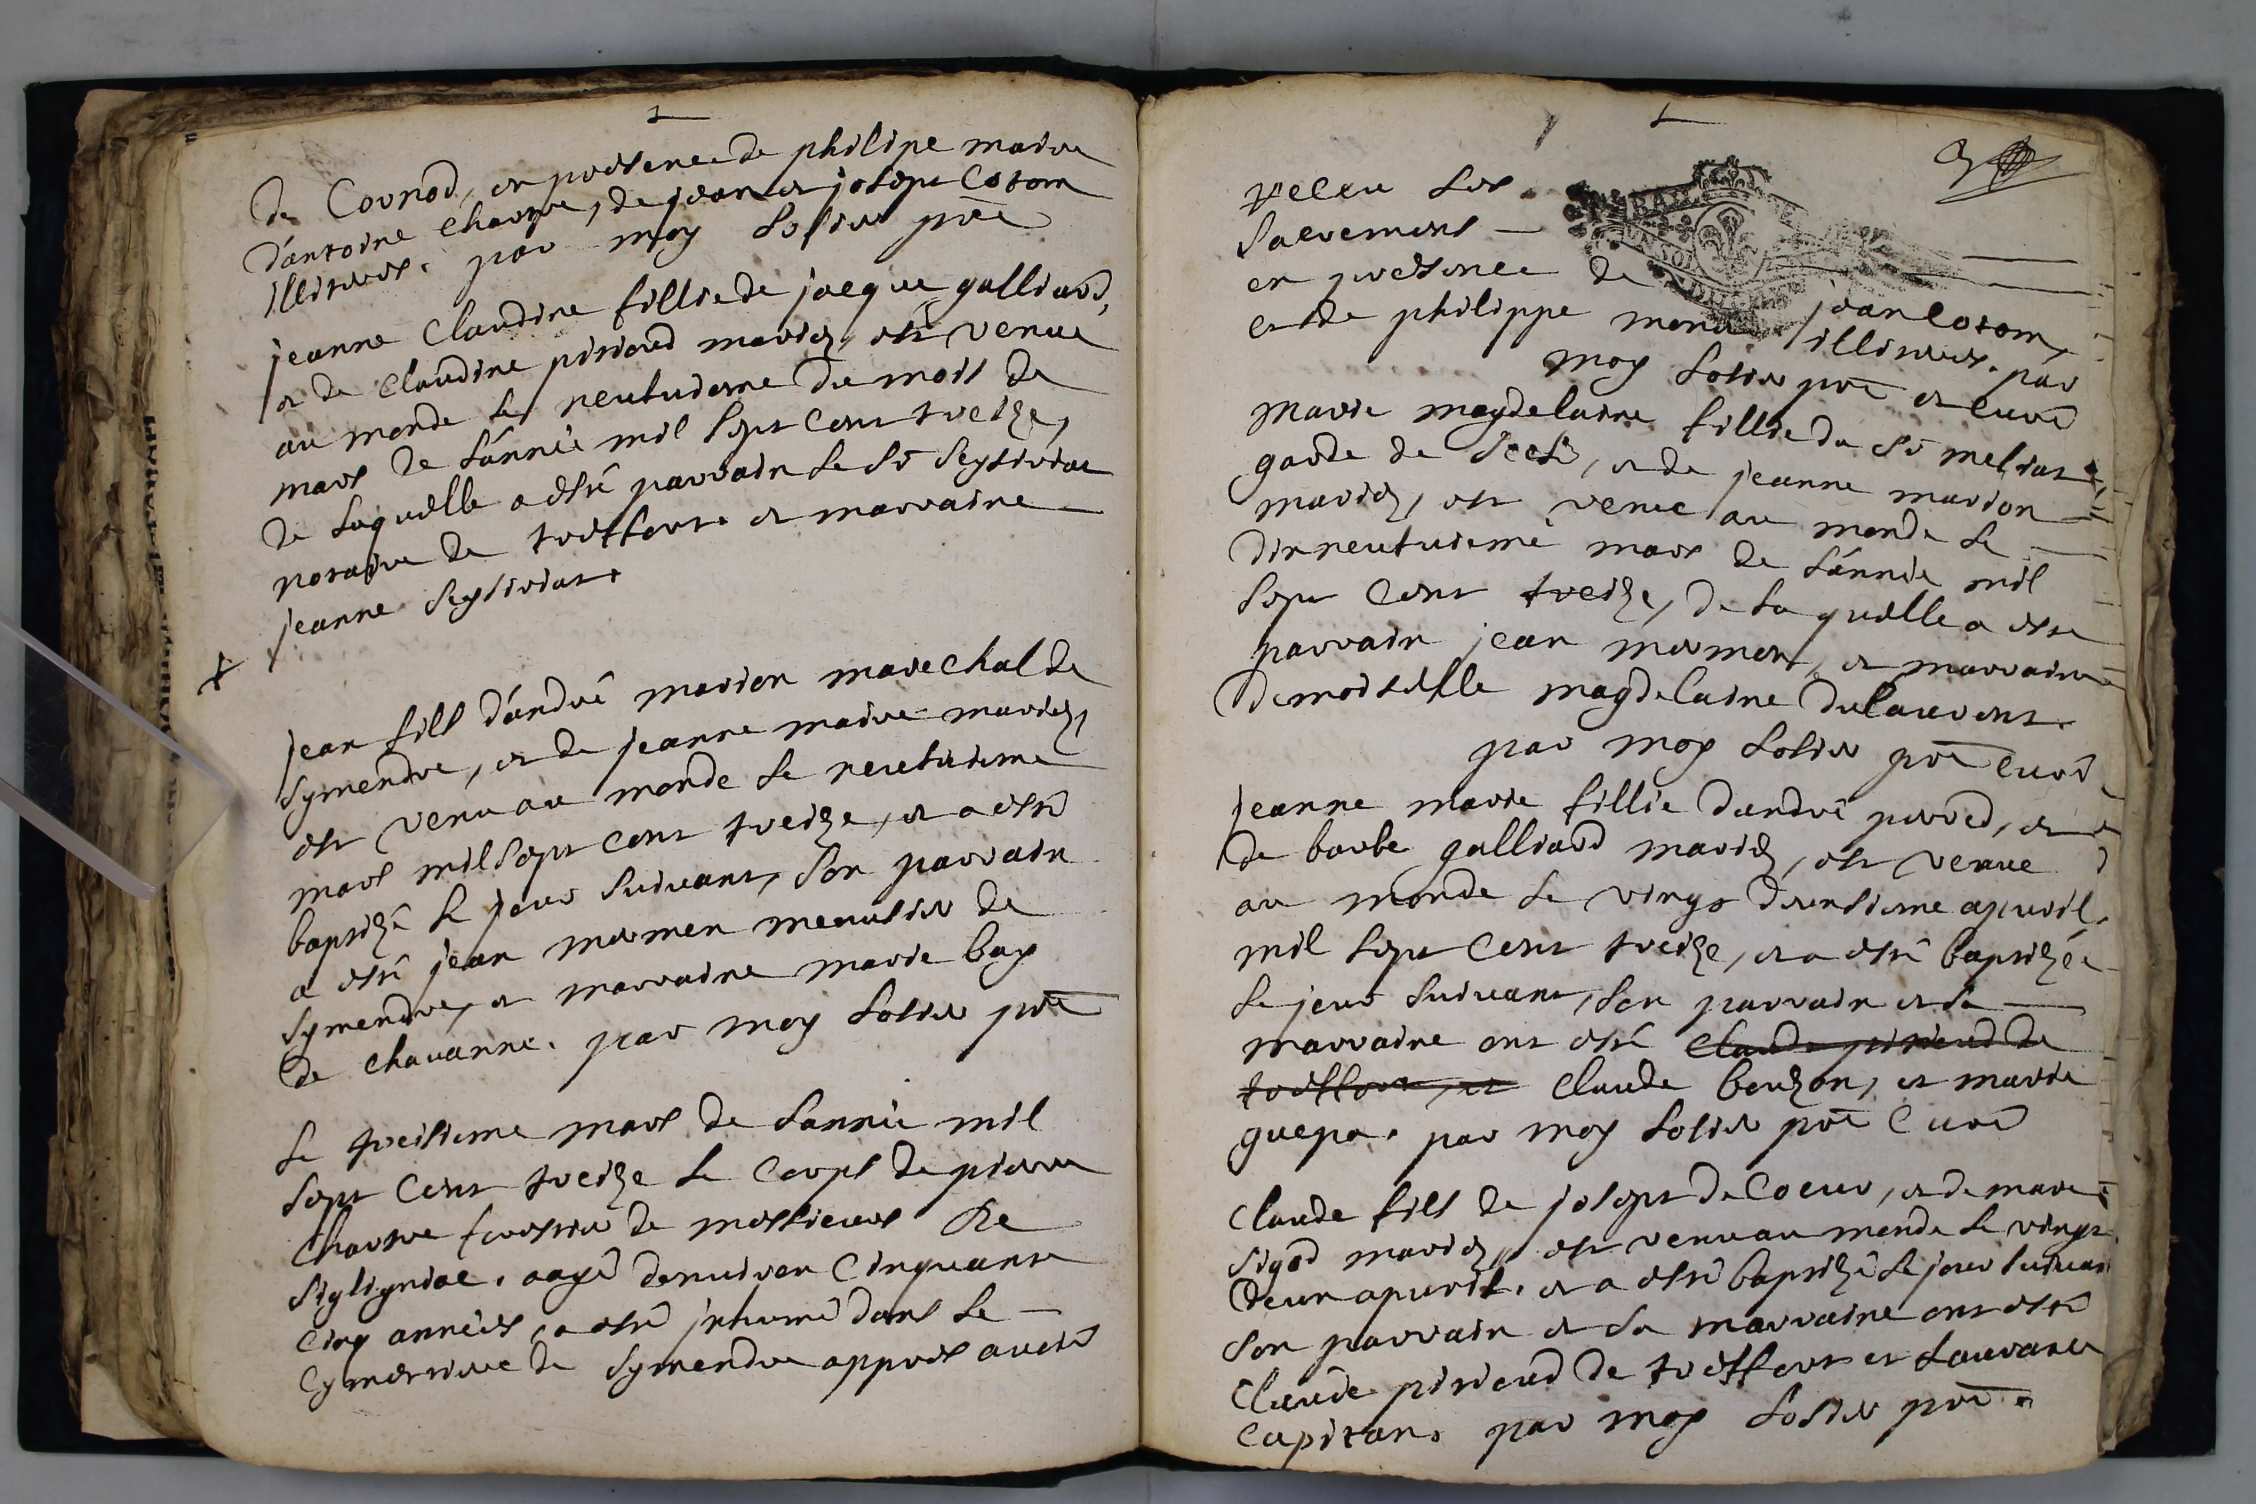 de Cornod, en presence de philipe maire
d'antoine charue, de jean et joseph Cotom
illiterés. par moy Solier pre
jeanne Claudine fillie de jacque galliard,
et de Claudine piriod mariez, est venue
au monde le neufvieme du mois de
mars de l'année mil sept cent treize,
de laquelle a esté parrain le Sr
notaire de treffort. et marraine
jeanne
jean fils d'andré marion marechal de
Symendre, et de jeanne maire mariez,
est venu au monde le neufvieme
mars mil sept cent treize, et a esté
baptizé le jour suivant, son parrain
a esté jean mermen menusier de
Symendre, et marraine marie bay
de chavanne. par moy Solier pre
Le treisieme mars de l'année mil
sept cent treize le corps de pierre
Charue de messieurs de
aagé denviron cinquante
cinq années, a esté inhumé dans le
Cymertiere de Symendre appres avoir
3
receu ses
sacremens
en presence de jean Cotom,
et de philippe illiterés. par
moy Solier pre et curé
Marie magdelaine fillie du Sr meliat
garde de et de jeanne marion
mariez, est venue au monde le
dixneufvieme mars de l'année mil
sept cent treize, de laquelle a esté
parrain jean mermen, et marraine
demoiselle magdelaine dulaurent.
par moy Solier pre curé
jeanne marie fillie dandré perrod, et
de barbe galliard mariez, est venue
au monde le vingt deuxsieme apvril
mil sept cent treize, et a esté baptizée
le jour suivant, son parrain et sa
marraine ont esté Claude pirioud de
treffort, et Claude bouzon, et marie
guepa. par moy Solier pre Curé
Claude fils de joseph de Coeur, et de marie
Sigod mariez, est venu au monde le vingt
deux apvril. et a esté baptizé le jour suivant
son parrain et sa marraine ont esté
Claude pirioud de treffort et Laurance
Capitan. par moy Solier pre.